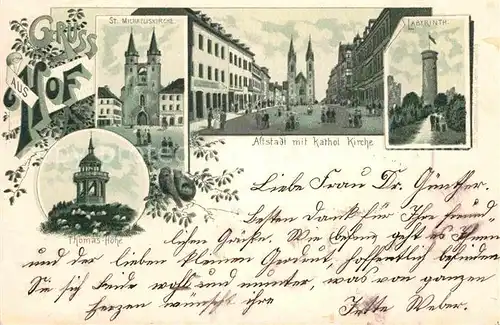 Gruss
aus
Hof
St. Michaeliskirche.
Labyrinth.
Altstadt mit Kathol Kirche
Thomas-Höhe
Liebe Frau Dr. Günther.
Besten Dank für Ihre freund
lichen Grüße. Wie geht es Ihnen
und der lieben kleinen hoffentlich befinden
Sie sich beide wohl und munter, was von ganzen
Herzen wünscht ihre Jette Weber.